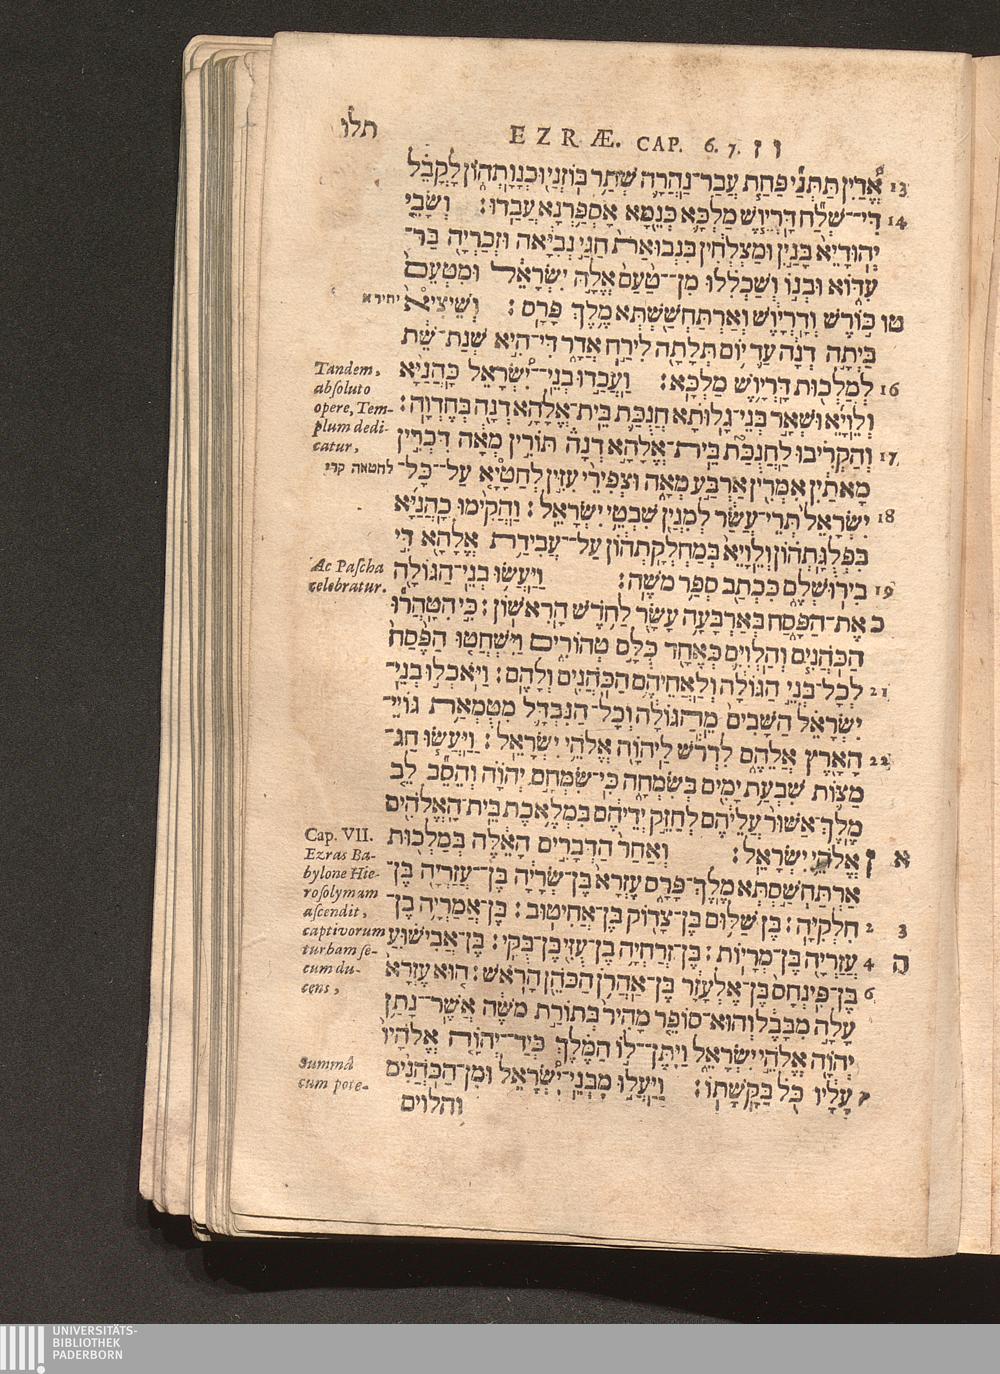 תלו EZRÆ. CAP. 6. 7. ו ז
אֱדַיִן תַּתְּנַי פַּחַת עֲבַר־נַהֲרָה שְׁתַר בּוֹזְנַי וּכְנָוָתְהוֹן לָקֳבֵל 13
דִּי־שְׁלַח דָּרְיָוֶשׁ מַלְכָּא כְּנֵמָא אָסְפַּרְנָא עֲבַדוּ׃ וְשָׂבֵי 14
יְהוּדָיֵא בָּנַיִן וּמַצְלְחִין בִּנְבוּאַת חַגַּי נְבִיָּאה וּזְכַרְיָה בַּר־
עִדּוֹא וּבְנוֹ וְשַׁכְלִלוּ מִן־טַעַם אֱלָהּ יִשְׂרָאֵל וּמִטְּעֵם
טו כּוֹרֶשׁ וְדָרְיָוֶשׁ וְאַרְתַּחְשַׁשְׂתְּא מֶלֶךְ פָּרָס׃ וְשֵׁיצִיא יתיר א
בַּיְתָה דְנָה עַד יוֹם תְּלָתָה לִירַח אֲדָר דִּי־הִיא שְׁנַת־שֵׁת
לְמַלְכוּת דָּרְיָוֶשׁ מַלְכָּא׃ וַעֲבַדוּ בְנֵי־יִשְׂרָאֵל כָּהֲנַיָּא 16
וְלֵוָיֵא וּשְׁאָר בְּנֵי־גָלוּתָא חֲנֻכַּת בֵּית־אֱלָהָא דְנָה בְּחֶדְוָה׃
וְהַקְרִבוּ לַחֲנֻכַּת בֵּית־אֱלָהָא דְנָה תּוֹרִין מְאָה דִּכְרִין 17
מָאתַיִן אִמְּרִין אַרְבַּע מְאָה וּצְפִירֵי עִזִּין לְחַטָּיָא עַל־כָּל־
יִשְׂרָאֵל תְּרֵי־עֲשַׂר לְמִנְיָן שִׁבְטֵי יִשְׂרָאֵל׃ וַהֲקִימוּ כָהֲנַיָּא 18
בִּפְלֻגָּתְהוֹן וְלֵוָיֵא בְּמַחְלְקָתְהוֹן עַל־עֲבִידַת אֱלָהָא דִּי
בִירוּשְׁלֶם כִּכְתָב סְפַר מֹשֶׁה׃ וַיַּעֲשׂוּ בְנֵי־הַגּוֹלָה 19
כ אֶת־הַפָּסַח בְּאַרְבָּעָה עָשָׂר לַחֹדֶשׁ הָרִאשׁוֹן׃ כִּי הִטַּהֲרוּ
הַכֹּהֲנִים וְהַלְוִיִּם כְּאֶחָד כֻּלָּם טְהוֹרִים וַיִּשְׁחֲטוּ הַפֶּסַח
לְכָל־בְּנֵי הַגּוֹלָה וְלַאֲחֵיהֶם הַכֹּהֲנִים וְלָהֶם׃ וַיֹּאכְלוּ בְנֵי־ 21
יִשְׂרָאֵל הַשָּׁבִים מֵהַגּוֹלָה וְכָל־הַנִּבְדָּל מִטֻּמְאַת גּוֹיֵי־
הָאָרֶץ אֲלֵהֶם לִדְרֹשׁ לַיהוָֹה אֱלֹהֵי יִשְׂרָאֵל׃ וַיַּעֲשׂוּ חַג־ 22
מַצּוֹת שִׁבְעַת יָמִים בְּשִׂמְחָה כִּי־שִׂמְּחָם יְהוָֹה וְהֵסֵב לֵב
מֶלֶךְ־אַשּׁוּר עֲלֵיהֶם לְחַזֵּק יְדֵיהֶם בִּמְלֶאכֶת בֵּית־הָאֱלֹהִים
א ז אֱלֹהֵי יִשְׂרָאֵל׃ וְאַחַר הַדְּבָרִים הָאֵלֶּה בְּמַלְכוּת
אַרְתַּחְשַׁסְתְּא מֶלֶךְ־פָּרָס עֶזְרָא בֶּן־שְׂרָיָה בֶּן־עֲזַרְיָה בֶּן־
חִלְקִיָּה׃ בֶּן־שַׁלּוּם בֶּן־צָדוֹק בֶּן־אֲחִיטוּב׃ בֶּן־אֲמַרְיָה בֶן־ 2 3
עֲזַרְיָה בֶּן־מְרָיוֹת׃ בֶּן־זְרַחְיָה בֶן־עֻזִּי בֶּן־בֻּקִּי׃ בֶּן־אֲבִישׁוּעַ 4 ה
בֶּן־פִּינְחָס בֶּן־אֶלְעָזָר בֶּן־אַהֲרֹן הַכֹּהֵן הָרֹאשׁ׃ הוּא עֶזְרָא 6
עָלָה מִבָּבֶל וְהוּא־סוֹפֵר מָהִיר בְּתוֹרַת מֹשֶׁה אֲשֶׁר־נָתַן
יְהוָֹה אֱלֹהֵי יִשְׂרָאֵל וַיִּתֶּן־לוֹ הַמֶּלֶךְ כְּיַד־יְהוָֹה אֱלֹהָיו
עָלָיו כֹּל בַּקָּשָׁתוֹ׃ וַיַּעֲלוּ מִבְּנֵי־יִשְׂרָאֵל וּמִן־הַכֹּהֲנִים 7
והלוים
Tandem,
absoluto
opere, Tem-
plum dedi-
catur,
לחטאה קרי
Ac Pascha
celebratur.
Cap. VII.
Ezras Ba-
bylone Hie-
rosolymam
ascendit,
captivorum
turbam se-
cum du-
cens,
Summâ
cum pote-
UNIVERSITÄTS-
BIBLIOTHEK
PADERBORN